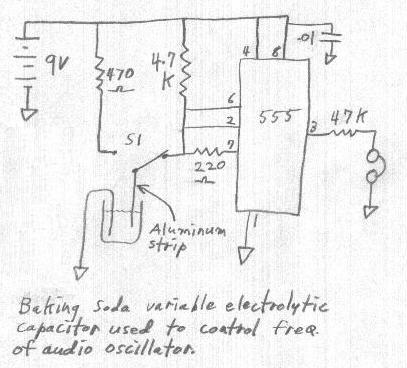 .01
4 8
9V
470
Ω
4.7
K
6
2
555
3
47K
S1
7
220
Ω
1
Aluminum
strip
Baking Soda variable electrolytic
capacitor used to control freq.
of audio oscillator.